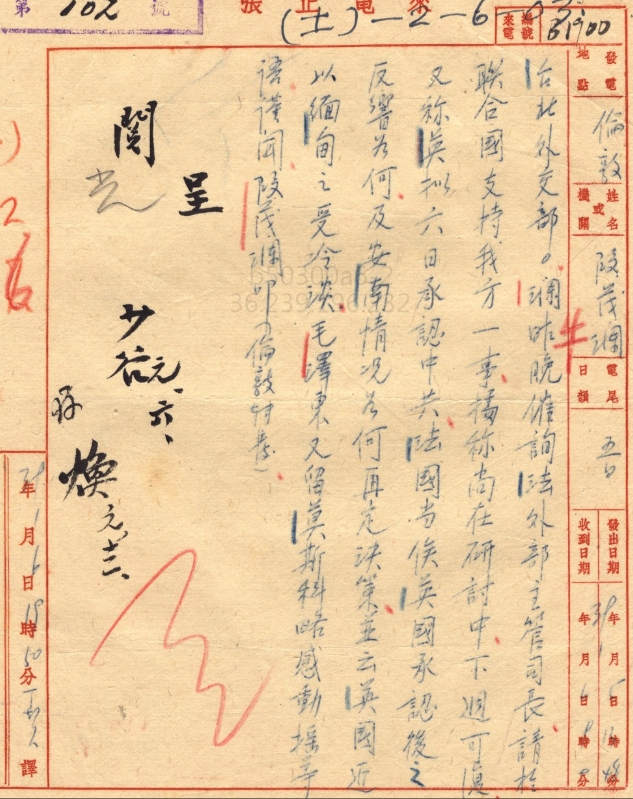 來電 正張
第 102 號
編號 來電
B1900
發電地點 倫敦
姓名或機關 段茂瀾
電尾日韻 五日
發出日期 39年1月5日
收到日期 年1月6日8時
台北外交部。瀾昨晚催詢法外部主管司長請於
聯合國支持我方一事據稱尚在研討中下週可復
又称英拟六日承認中共法國當俟英國承認後之
反響為何及安南情況為何再定決策並云英國近
以緬甸之受冷淡毛澤東又留莫斯科略感動摇等
語謹聞段茂瀾叩(倫敦轉發)
呈
閱
少谷 元、六、
煥 元、
39年1月6日19時50分 譯